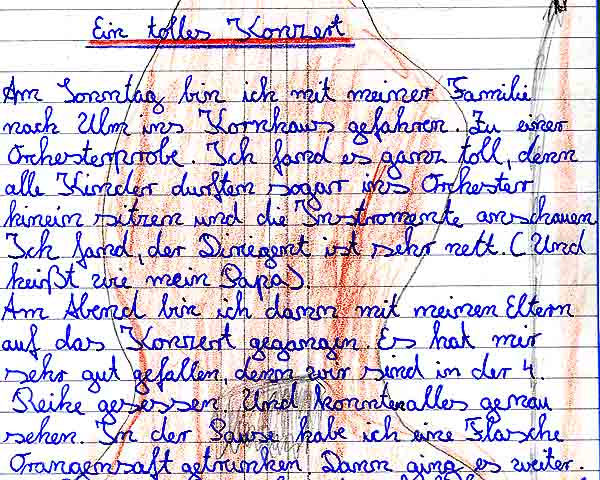 Ein tolles Konzert
Am Sonntag bin ich mit meiner Familie
nach Ulm ins Kornhaus gefahren. Zu einer
Orchesterprobe. Ich fand es ganz toll, denn
alle Kinder durften sogar ins Orchester
hinein sitzen und die Instromente anschauen
Ich fand, der Diriegent ist sehr nett. (Und
heißt wie mein Papa).
Am Abend bin ich dann mit meinen Eltern
auf das Konzert gegangin. Es hat mir
sehr gut gefallen, denn wir sind in der 4.
Reihe gesessen. Und konnten alles genau
sehen. In der Pause habe ich eine Flasche
Orangensaft getrunken. Dann ging es weiter.